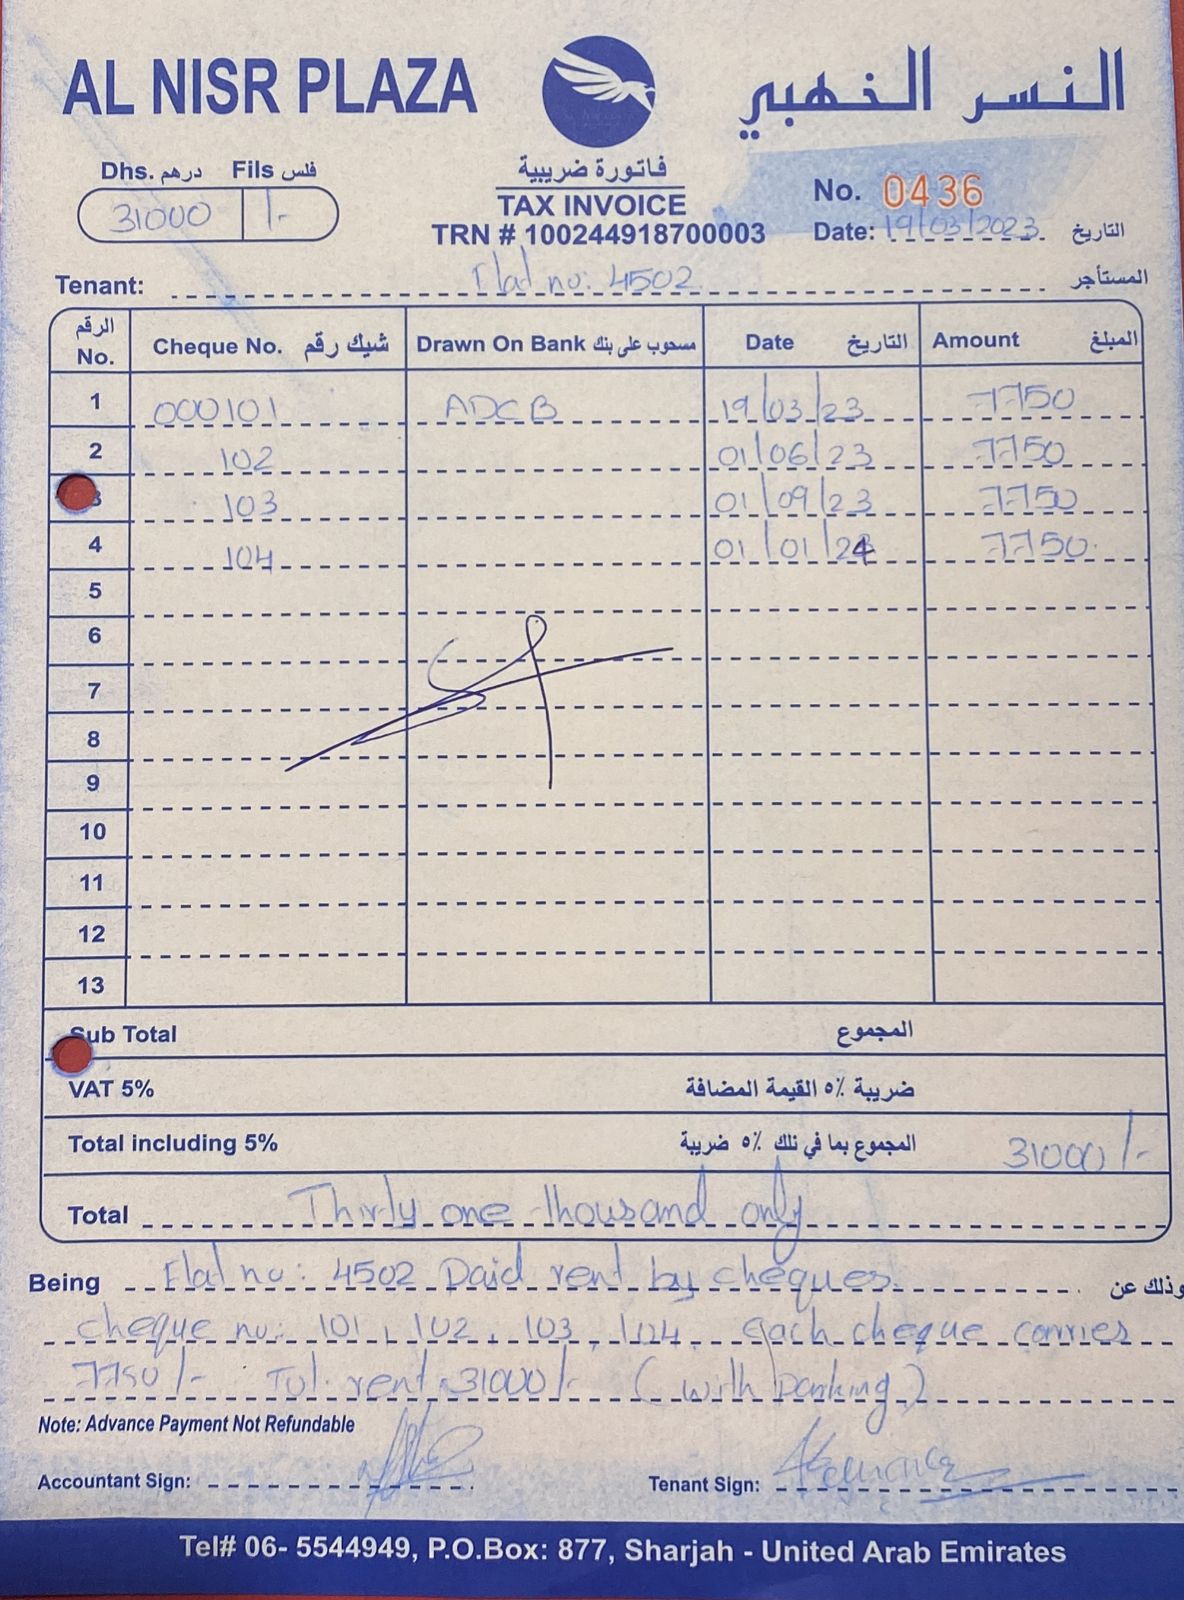 AL NISR PLAZA النسر الخهبي
Dhs. درهم Fils فلس
31000 /-
فاتورة ضريبية
TAX INVOICE
TRN # 100244918700003
No. 0436
Date: 19/03/2023 التاريخ
Tenant: Flat no: 4502 المستأجر
الرقم No. Cheque No. شيك رقم Drawn On Bank مسحوب على بنك Date التاريخ Amount المبلغ
1 000101 ADCB 19/03/23 7750
2 102 01/06/23 7750
3 103 01/09/23 7750
4 104 01/01/24 7750
5
6
7
8
9
10
11
12
13
Sub Total المجموع
VAT 5% ضريبة ٥٪ القيمة المضافة
Total including 5% المجموع بما في تلك ٥٪ ضريبة 31000/-
Total Thirty one thousand only
Being Flat no: 4502 Paid rent by cheques. وذلك عن
cheque no: 101, 102, 103, 104. each cheque carries
7750/- Tot. rent 31000/- (with parking)
Note: Advance Payment Not Refundable
Accountant Sign: Tenant Sign:
Tel# 06- 5544949, P.O.Box: 877, Sharjah - United Arab Emirates